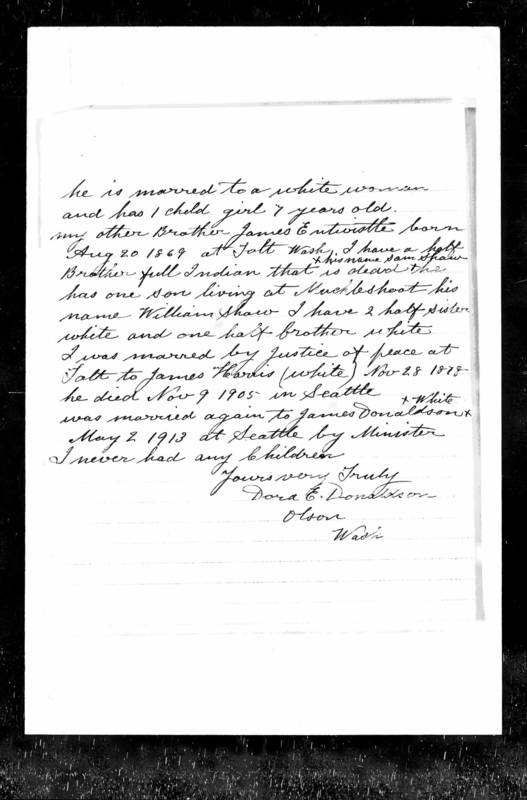 he is marred to a white woman
and has 1 child girl 7 years old.
my other Brother James Entwistle born
Aug 20 1869 at Tolt Wash. I have a half
x his name Sam Shaw
Brother full Indian that is dead the
has one son living at Muckleshoot his
name William Shaw I have 2 half sister
white and one half brother white
I was marred by Justice of peace at
Tolt to James Harris (white) Nov 28 1878
he died Nov 9 1905 in Seattle
x White
was married again to James Donaldson x
May 2 1913 at Seattle by Minister
I never had any Children
Yours very Truly
Dora E. Donaldson
Olson
Wash